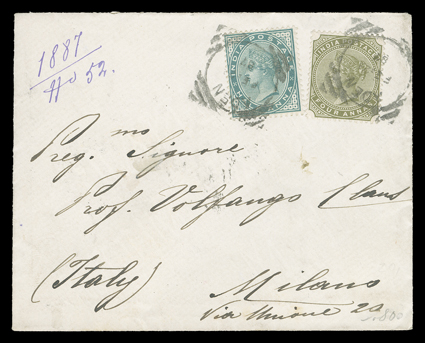 1887
No 52.
INDIA POSTAGE
ANNA
INDIA POSTAGE
FOUR ANNAS
Preg.mo Signore
Prof. Volfango Claus
(Italy) Milano
Via Unione 20